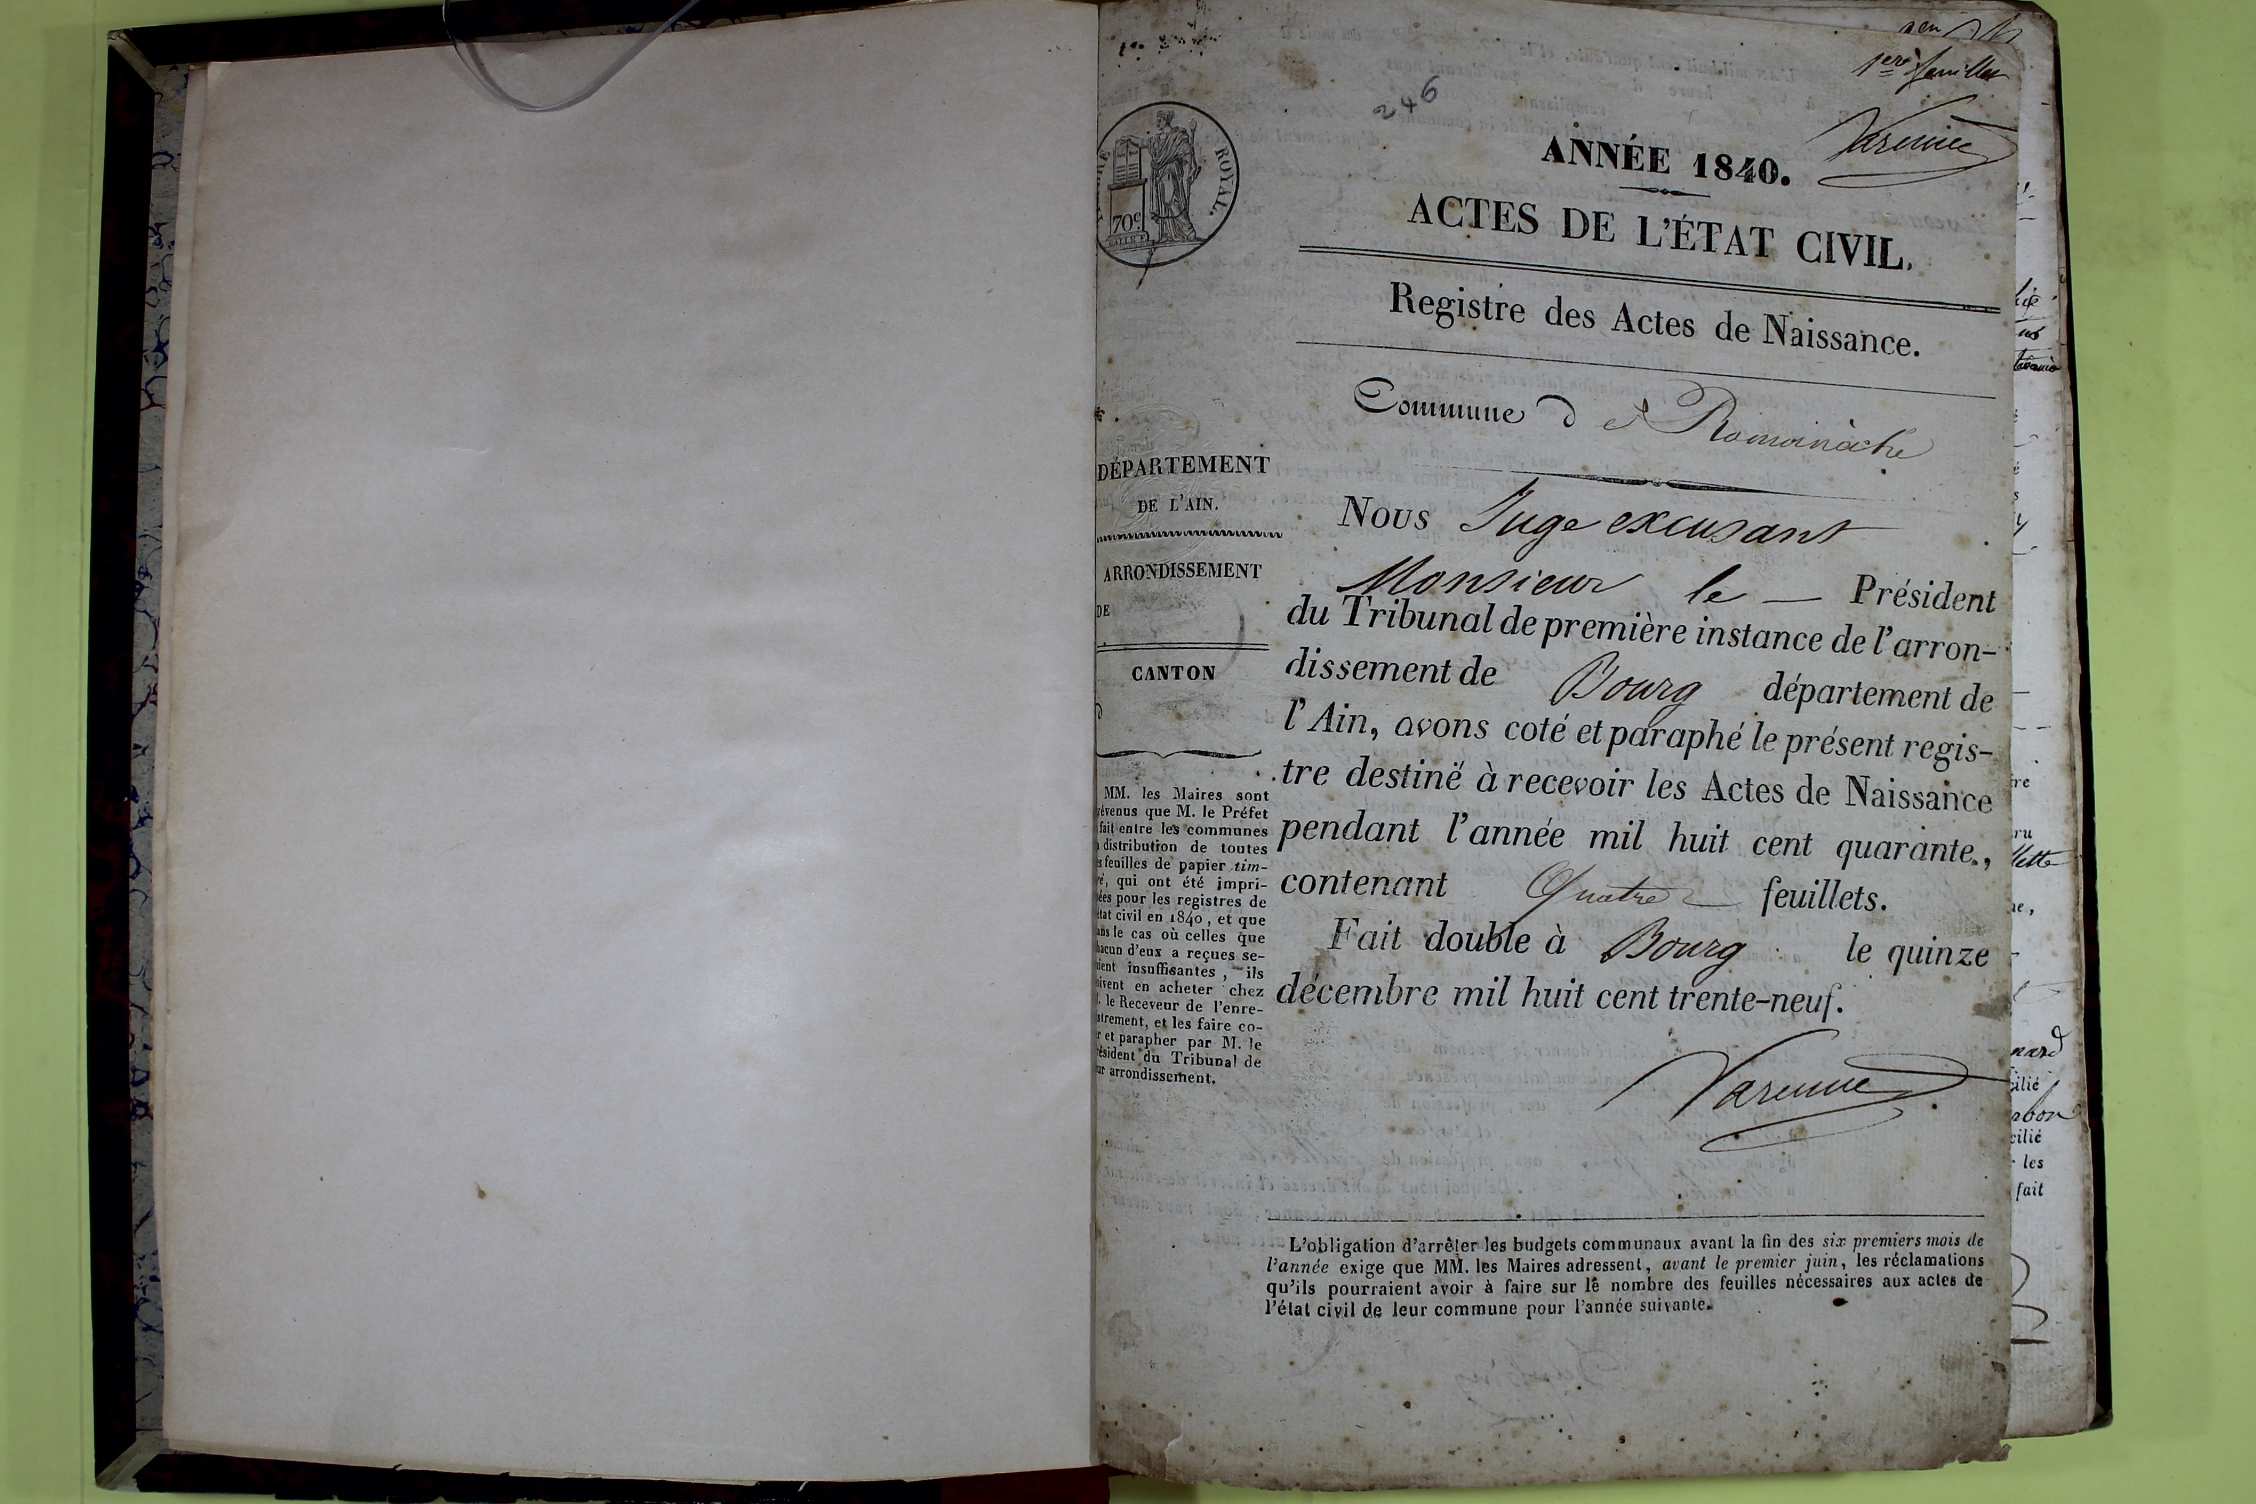 1ere feuillet
246
Varenne
ANNÉE 1840.
ACTES DE L'ÉTAT CIVIL.
ROYAL.
70c
Registre des Actes de Naissance.
Commune de Romanèche
DÉPARTEMENT
DE L'AIN.
ARRONDISSEMENT
DE
CANTON
MM. les Maires sont
révenus que M. le Préfet
fait entre les communes
distribution de toutes
feuilles de papier tim-
qui ont été impri-
ées pour les registres de
état civil en 1840, et que
ans le cas où celles que
hacun d'eux a reçues se-
aient insuffisantes, ils
oivent en acheter chez
le Receveur de l'enre-
istrement, et les faire co-
r et parapher par M. le
résident du Tribunal de
ur arrondissement.
Nous Juge excusant
Monsieur le — Président
du Tribunal de première instance de l'arron-
dissement de Bourg département de
l'Ain, avons coté et paraphé le présent regis-
tre destiné à recevoir les Actes de Naissance
pendant l'année mil huit cent quarante,
contenant Quatre feuillets.
Fait double à Bourg le quinze
décembre mil huit cent trente-neuf.
Varenne
L'obligation d'arrêter les budgets communaux avant la fin des six premiers mois de
l'année exige que MM. les Maires adressent, avant le premier juin, les réclamations
qu'ils pourraient avoir à faire sur le nombre des feuilles nécessaires aux actes de
l'état civil de leur commune pour l'année suivante.
cilié
les
fait